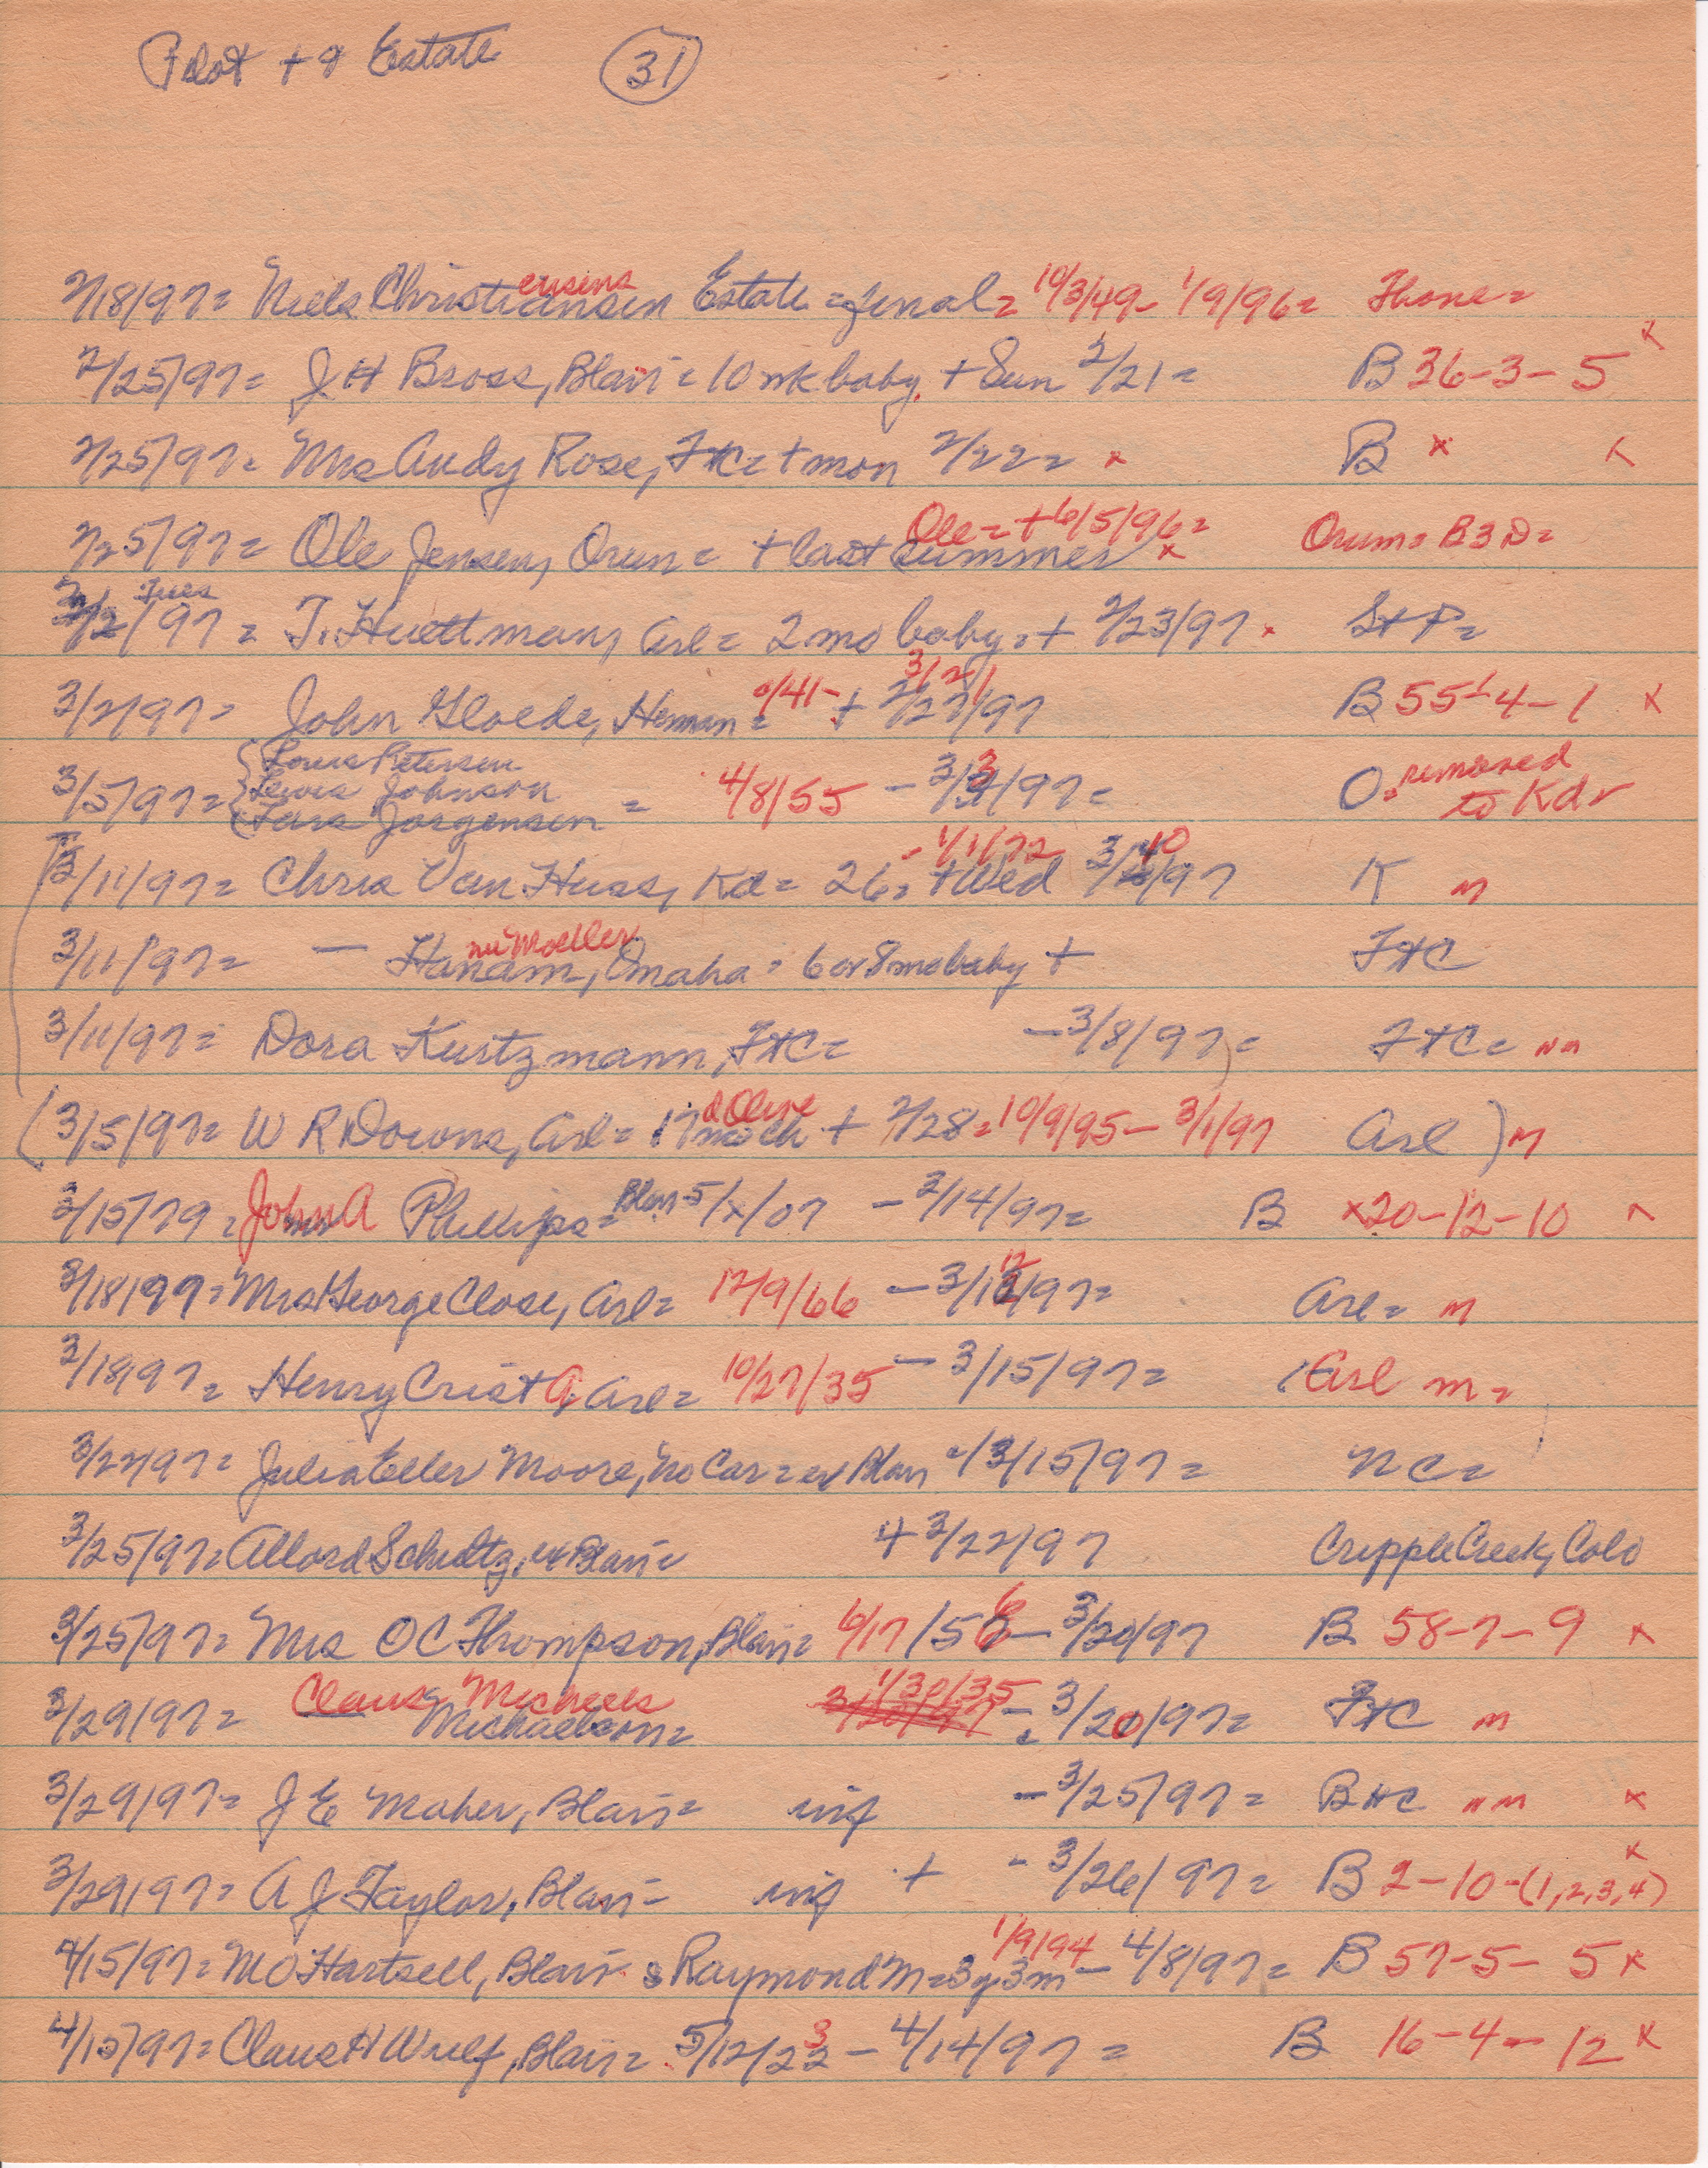 Pilot + 9 Estate (31)
2/18/97= Niels Christiansen ensens Estate = final = 10/3/49- 1/9/96= Thone=
2/25/97= J H Bross, Blair = 10 wk baby + Sun 2/21= B 36-3-5 x
2/25/97= Mrs Andy Rose, FtC= + mon 2/22= x B x x
2/25/97= Ole Jensen, Orum= + last summer x Ole= + 6/5/96= Orum= B3D=
3/2/97 Tues = T. Huettman, Arl= 2 mo baby. + 2/23/97 x
3/2/97= John Gloede, Herman= /41- + 2/27/97 3/2/ B 55-4-1 x
3/5/97= {Louis Petersen
{Lewis Johnson = 4/8/55 - 3/3/97= O= removed to Kd
{Lars Jorgensen
3/11/97= Chris Van Huss, Kd= 26= - 1/1/72 + Wed 3/10/97 K m
3/11/97= — Hanam, née Moeller Omaha = 6 or 8 mo baby + FtC
3/11/97= Dora Kurtzmann, FtC= - 3/8/97= FtC= nm
(3/5/97= W R Downs, Arl= 17 mo ch d Olive + 2/28= 10/9/95- 3/1/97 Arl) m
3/15/79= John A Phillips= Blair 5/x/07 - 3/14/97= B x20-12-10 x
3/18/97= Mrs George Close, Arl= 12/9/66 - 3/12/97= Arl= m
3/18/97= Henry Crist A, Arl= 10/27/35 - 3/15/97= Arl m=
3/22/97= Julia Eller Moore, No Car= ex Blair 3/15/97= NC=
3/25/97= Allord Schultz, ex Blair= + 3/22/97 Cripple Creek, Colo
3/25/97= Mrs OC Thompson, Blair= 6/17/56 - 3/20/97 B 58-7-9 x
3/29/97= Claus Michaels Michaelson= 1/30/35 - 3/20/97= FtC m
3/29/97= J E Maher, Blair= inf - 3/25/97= BHC nm x
3/29/97= A J Taylor, Blair= inf + - 3/26/97= B 2-10-(1,2,3,4) x
4/15/97= MO Hartsell, Blair s Raymond M=3y3m 1/9/94 - 4/8/97= B 57-5-5 x
4/15/97= Claus H Wulf, Blair= 5/12/23 - 4/14/97= B 16-4-12 x